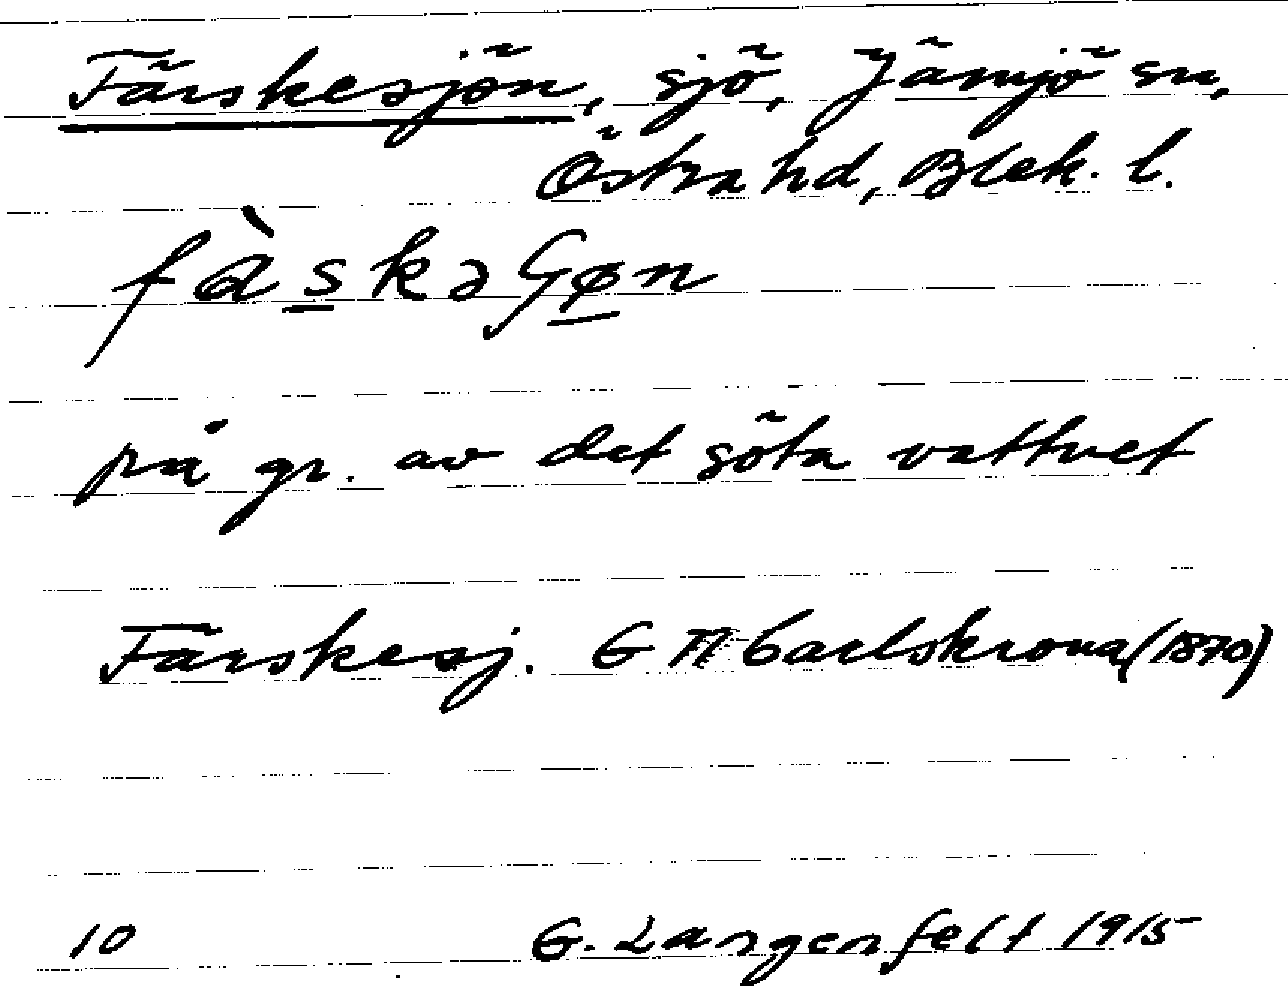 Färskesjön, sjö, Jämjö sn,
Östra hd, Blek. l.
på gr. av det söta vattnet
Färskesj. G Π Carlskrona (1870)
10 G. Langenfelt 1915